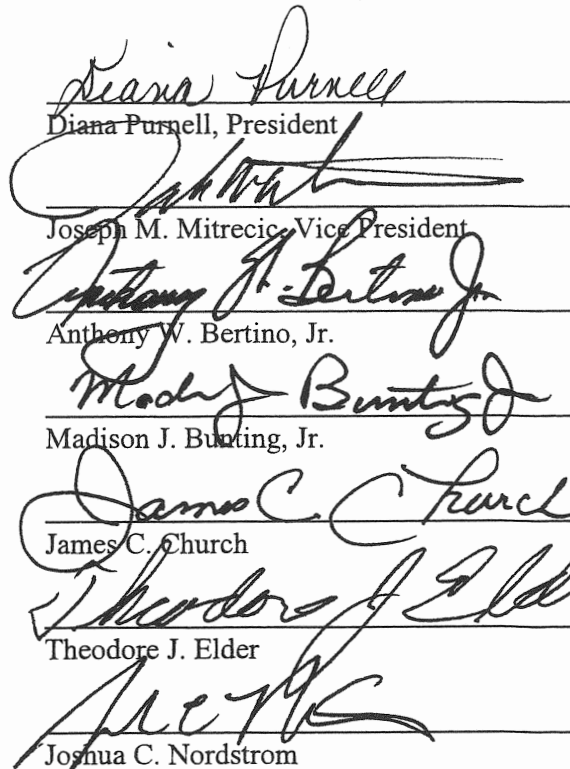 Diana Purnell
Diana Purnell, President
Joseph M. Mitrecic, Vice President
Anthony W. Bertino Jr.
Anthony W. Bertino, Jr.
Madison J Bunting Jr
Madison J. Bunting, Jr.
James C. Church
James C. Church
Theodore J Elder
Theodore J. Elder
Joshua C. Nordstrom